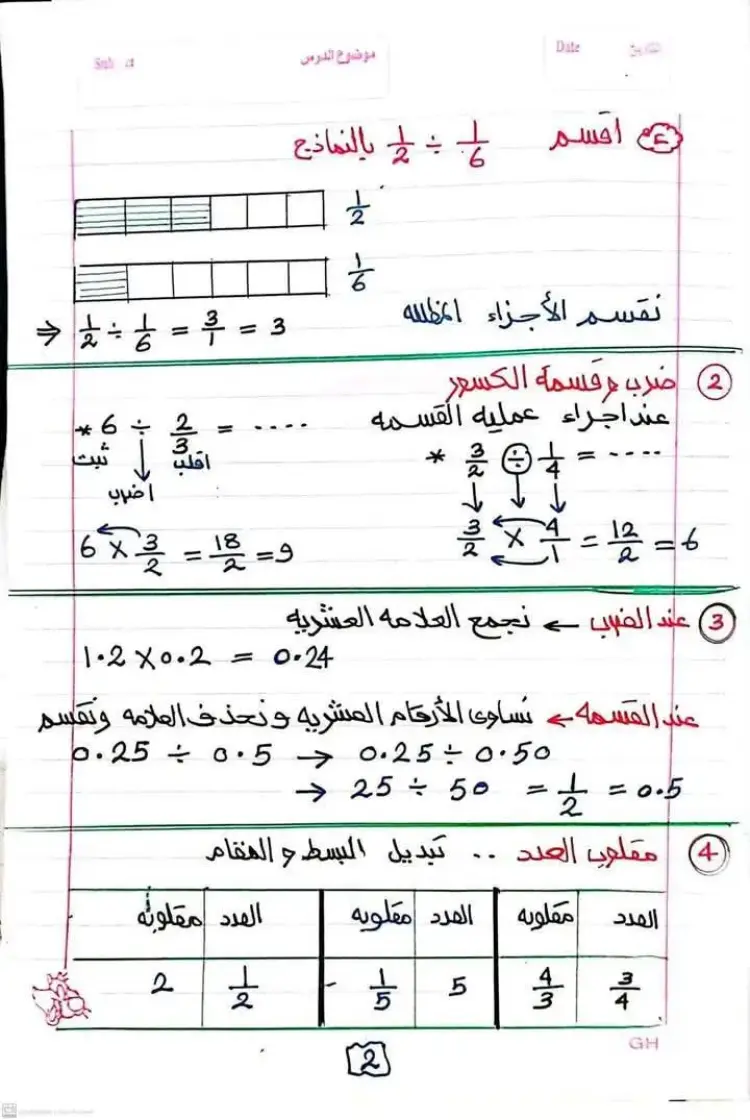 التاريخ Date موضوع الدرس
اقسم 1/2 ÷ 1/6 بالنماذج
1/2
1/6
نقسم الأجزاء المظلله
⇒ 1/2 ÷ 1/6 = 3/1 = 3
② ضرب وقسمة الكسور
عند اجراء عمليه القسمه
* 3/2 ÷ 1/4 = ....
3/2 × 4/1 = 12/2 = 6
* 6 ÷ 2/3 = ....
ثبت اضرب اقلب
6 × 3/2 = 18/2 = 9
③ عند الضرب ← نجمع العلامه العشريه
1.2 × 0.2 = 0.24
عند القسمه ← نساوى الأرقام العشريه ونحذف العلامه ونقسم
0.25 ÷ 0.5 → 0.25 ÷ 0.50
→ 25 ÷ 50 = 1/2 = 0.5
④ مقلوب العدد .. تبديل البسط والمقام
العدد مقلوبه العدد مقلوبه العدد مقلوبه
3/4 4/3 5 1/5 1/2 2
GH
2